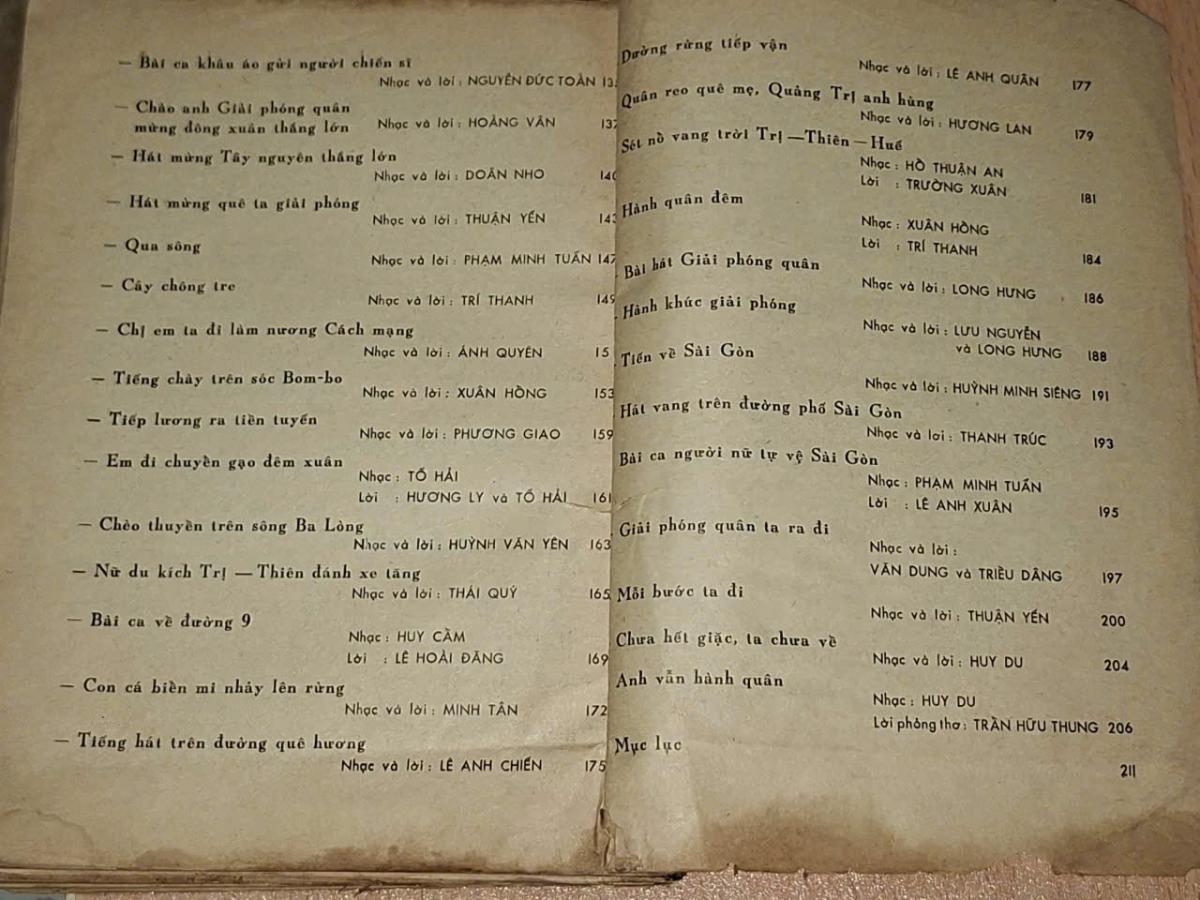 — Bài ca khâu áo gửi người chiến sĩ
Nhạc và lời : NGUYỄN ĐỨC TOÀN
— Chào anh Giải phóng quân
mừng đông xuân thắng lớn
Nhạc và lời : HOÀNG VÂN 137
— Hát mừng Tây nguyên thắng lớn
Nhạc và lời : DOÃN NHO 140
— Hát mừng quê ta giải phóng
Nhạc và lời : THUẬN YẾN 143
— Qua sông
Nhạc và lời : PHẠM MINH TUẤN 147
— Cây chông tre
Nhạc và lời : TRÍ THANH 149
— Chị em ta đi làm nương Cách mạng
Nhạc và lời : ÁNH QUYÊN 15
— Tiếng chày trên sóc Bom-bo
Nhạc và lời : XUÂN HỒNG 153
— Tiếp lương ra tiền tuyến
Nhạc và lời : PHƯƠNG GIAO 159
— Em đi chuyền gạo đêm xuân
Nhạc : TÔ HẢI
Lời : HƯƠNG LY và TÔ HẢI 161
— Chèo thuyền trên sông Ba Lòng
Nhạc và lời : HUỲNH VĂN YÊN 163
— Nữ du kích Trị — Thiên đánh xe tăng
Nhạc và lời : THÁI QUÝ 165
— Bài ca về đường 9
Nhạc : HUY CẦM
Lời : LÊ HOÀI ĐĂNG 169
— Con cá biền mi nhảy lên rừng
Nhạc và lời : MINH TÂN 172
— Tiếng hát trên đường quê hương
Nhạc và lời : LÊ ANH CHIẾN 175
Đường rừng tiếp vận
Nhạc và lời : LÊ ANH QUÂN 177
Quân reo quê mẹ, Quảng Trị anh hùng
Nhạc và lời : HƯƠNG LAN 179
Sét nổ vang trời Trị — Thiên — Huế
Nhạc : HỒ THUẬN AN
Lời : TRƯỜNG XUÂN 181
Hành quân đêm
Nhạc : XUÂN HỒNG
Lời : TRÍ THANH 184
Bài hát Giải phóng quân
Nhạc và lời : LONG HƯNG 186
Hành khúc giải phóng
Nhạc và lời : LƯU NGUYỄN
và LONG HƯNG 188
Tiến về Sài Gòn
Nhạc và lời : HUỲNH MINH SIÊNG 191
Hát vang trên đường phố Sài Gòn
Nhạc và lơi : THANH TRÚC 193
Bài ca người nữ tự vệ Sài Gòn
Nhạc : PHẠM MINH TUẤN
Lời : LÊ ANH XUÂN 195
Giải phóng quân ta ra đi
Nhạc và lời :
VĂN DUNG và TRIỀU DÂNG 197
Mỗi bước ta đi
Nhạc và lời : THUẬN YẾN 200
Chưa hết giặc, ta chưa về
Nhạc và lời : HUY DU 204
Anh vẫn hành quân
Nhạc : HUY DU
Lời phỏng thơ : TRẦN HỮU THUNG 206
Mục lục
211